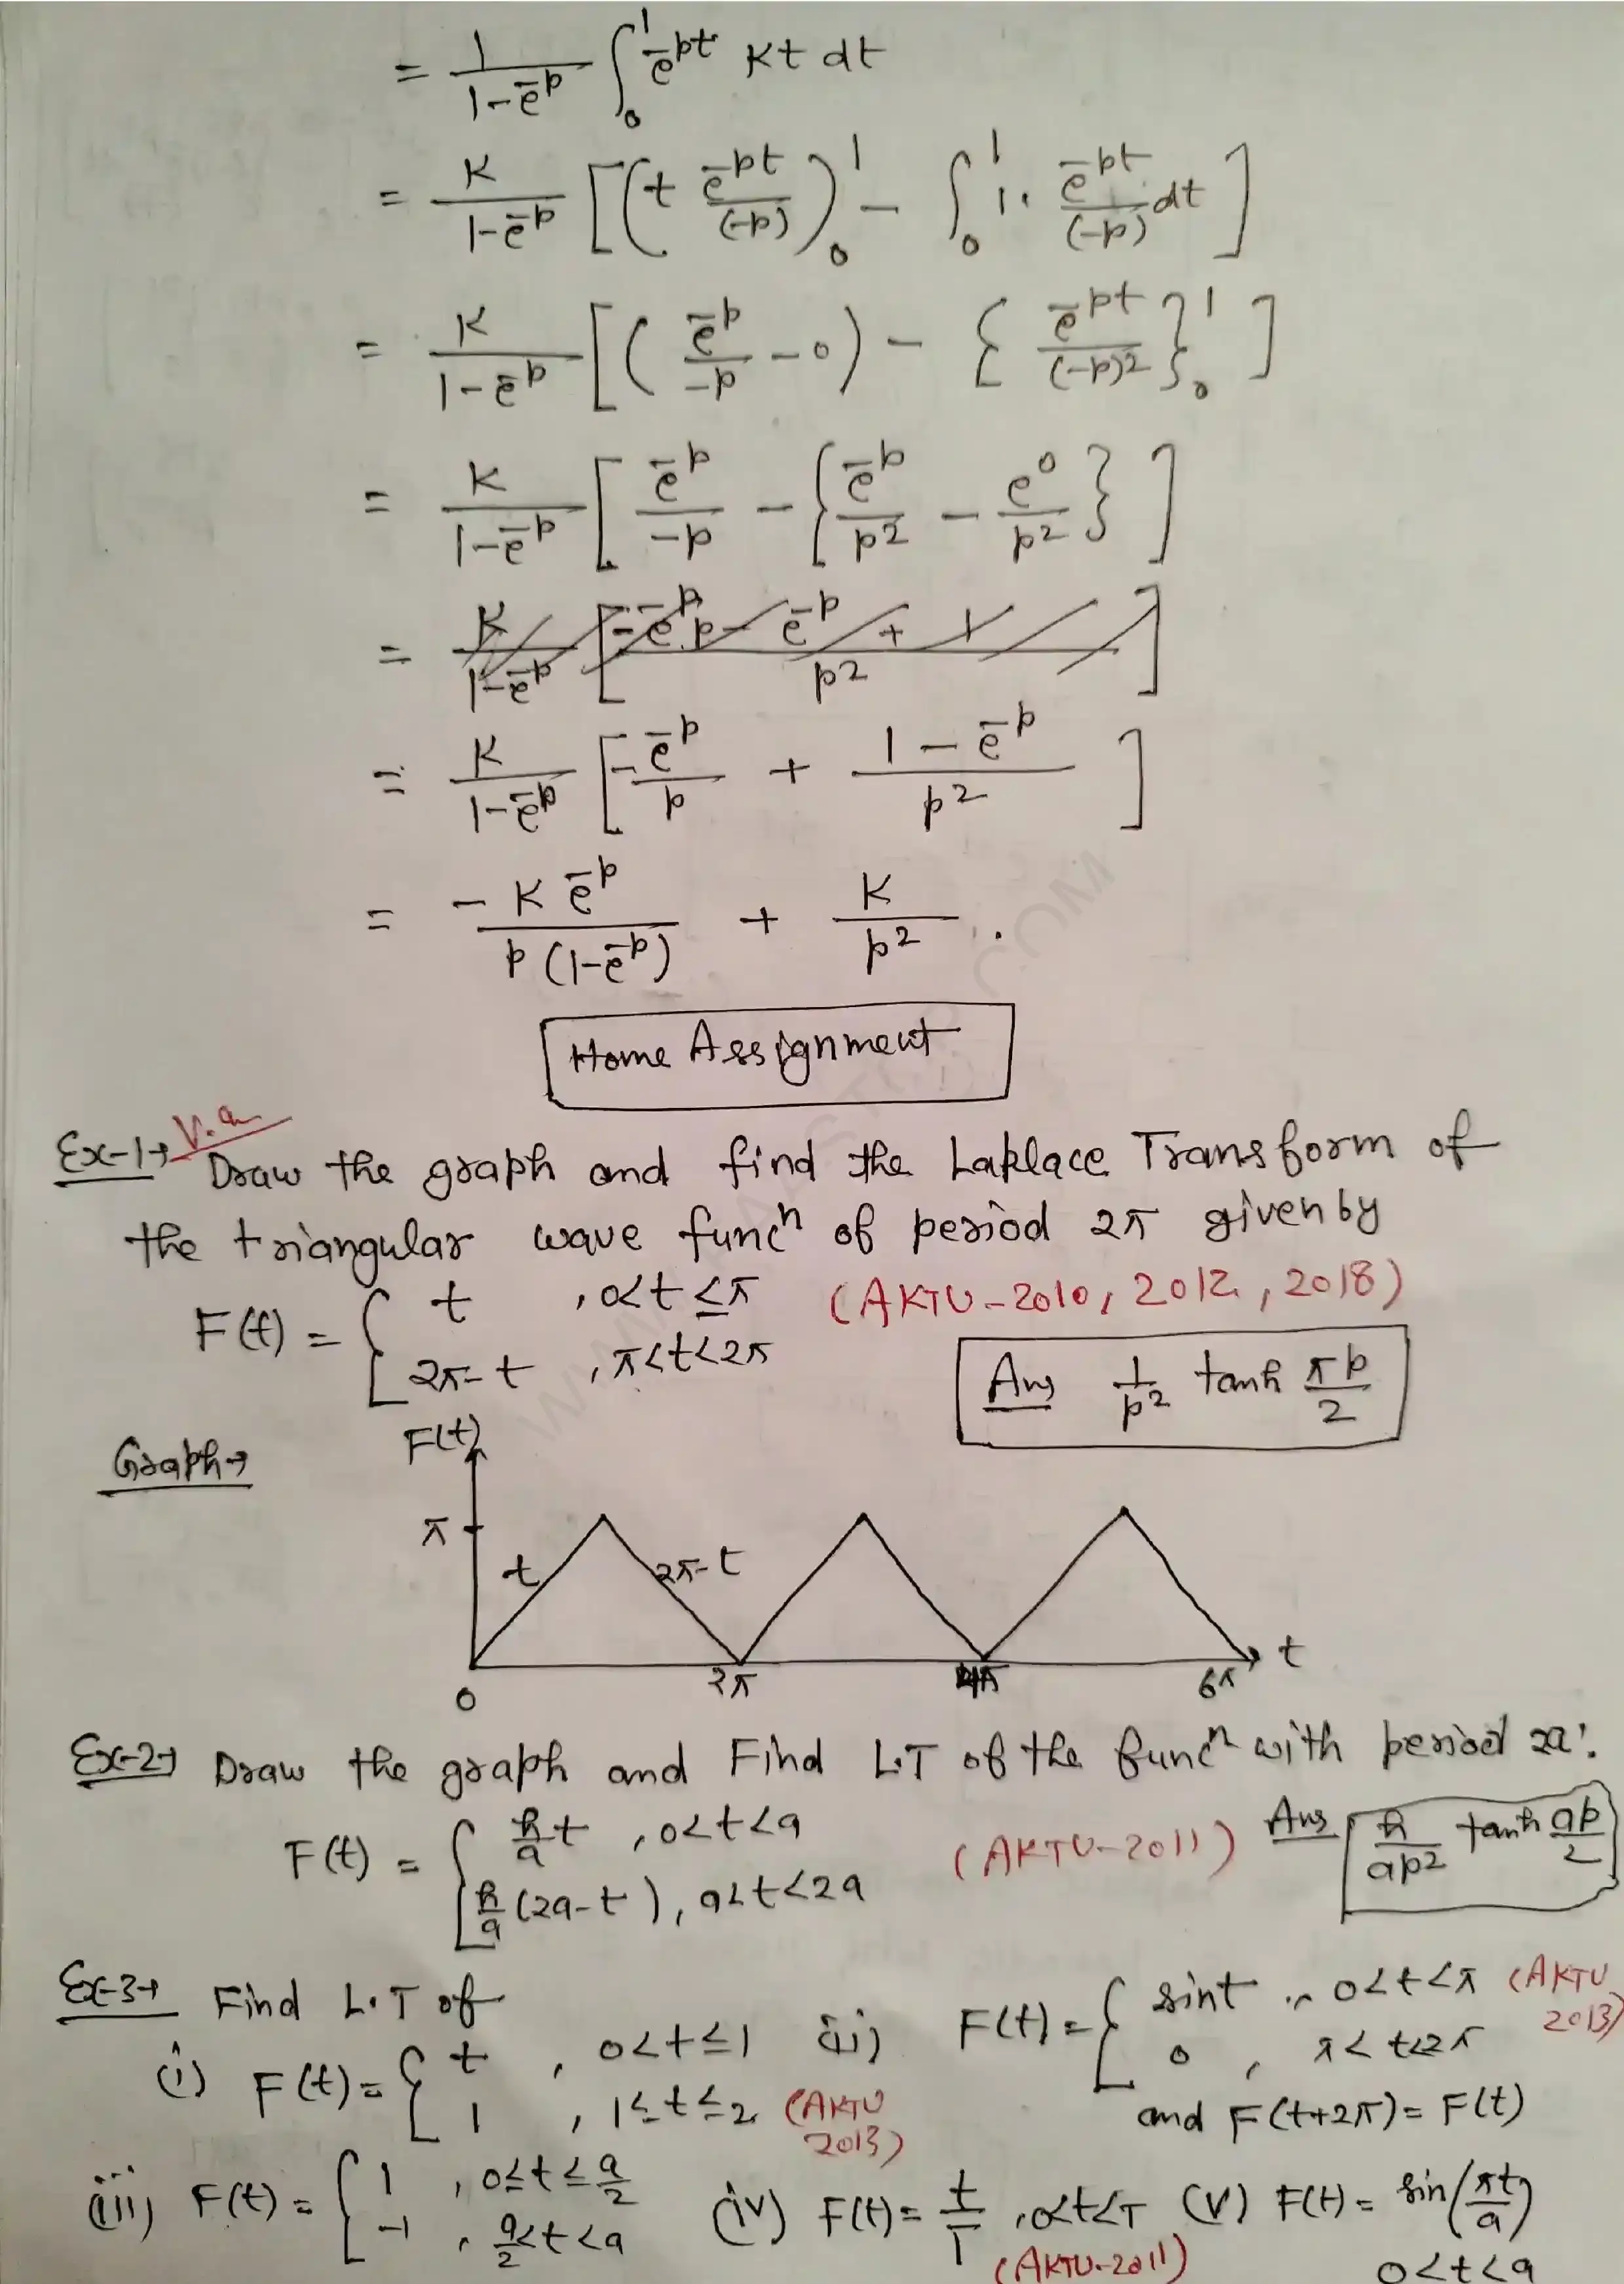 = 1/(1-e^-p) ∫_0^1 e^-pt Kt dt
= K/(1-e^-p) [(t e^-pt/(-p))_0^1 - ∫_0^1 1. e^-pt/(-p) dt]
= K/(1-e^-p) [(e^-p/-p - 0) - {e^-pt/(-p)^2}_0^1]
= K/(1-e^-p) [e^-p/-p - {e^-p/p^2 - e^0/p^2}]
= K/(1-e^-p) [(-e^-p p - e^-p + 1)/p^2]
= K/(1-e^-p) [-e^-p/p + (1-e^-p)/p^2]
= -K e^-p/(p(1-e^-p)) + K/p^2 .
Home Assignment
Ex-1→ V.a Draw the graph and find the Laplace Transform of
the triangular wave func^n of period 2π given by
F(t) = { t , 0<t≤π (AKTU-2010, 2012, 2018)
2π-t , π<t<2π
Ans 1/p^2 tanh πp/2
Graph→
F(t)
π
t 2π-t
t
0 2π 4π 6π
Ex-2→ Draw the graph and Find L.T of the func^n with period 2a:
F(t) = { k/a t , 0<t<a (AKTU-2011) Ans k/ap^2 tanh ap/2
k/a (2a-t), a<t<2a
Ex-3→ Find L.T of
(i) F(t) = { t , 0<t≤1
1 , 1≤t≤2 (AKTU 2013)
(ii) F(t) = { sint , 0<t<π (AKTU 2013)
0 , π<t<2π
and F(t+2π) = F(t)
(iii) F(t) = { 1 , 0≤t≤a/2
-1 , a/2<t<a
(iv) F(t) = t/T , 0<t<T (AKTU-2011)
(V) F(t) = sin(πt/a)
0<t<a